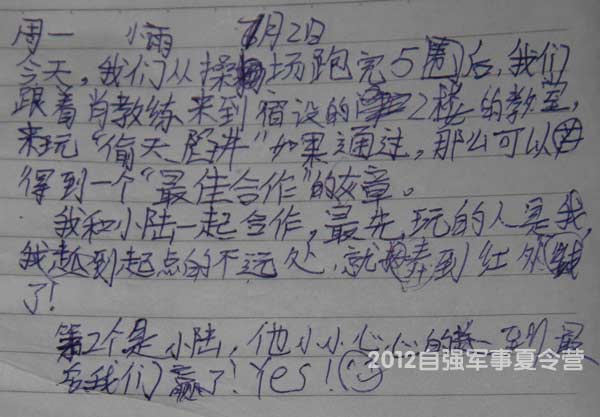 周一 小雨 7月2日
今天,我们从操场跑完5圈后,我们
跟着肖教练来到宿设的2楼的教室,
来玩“偷天陷井”如果通过,那么可以
得到一个“最佳合作”的文章。
我和小陆一起合作,最先玩的人是我,
我趟到起点的不远处,就到红处线
了!
第2个是小陆,他小小心心的
后我们赢了!Yes!
2012自强军事夏令营